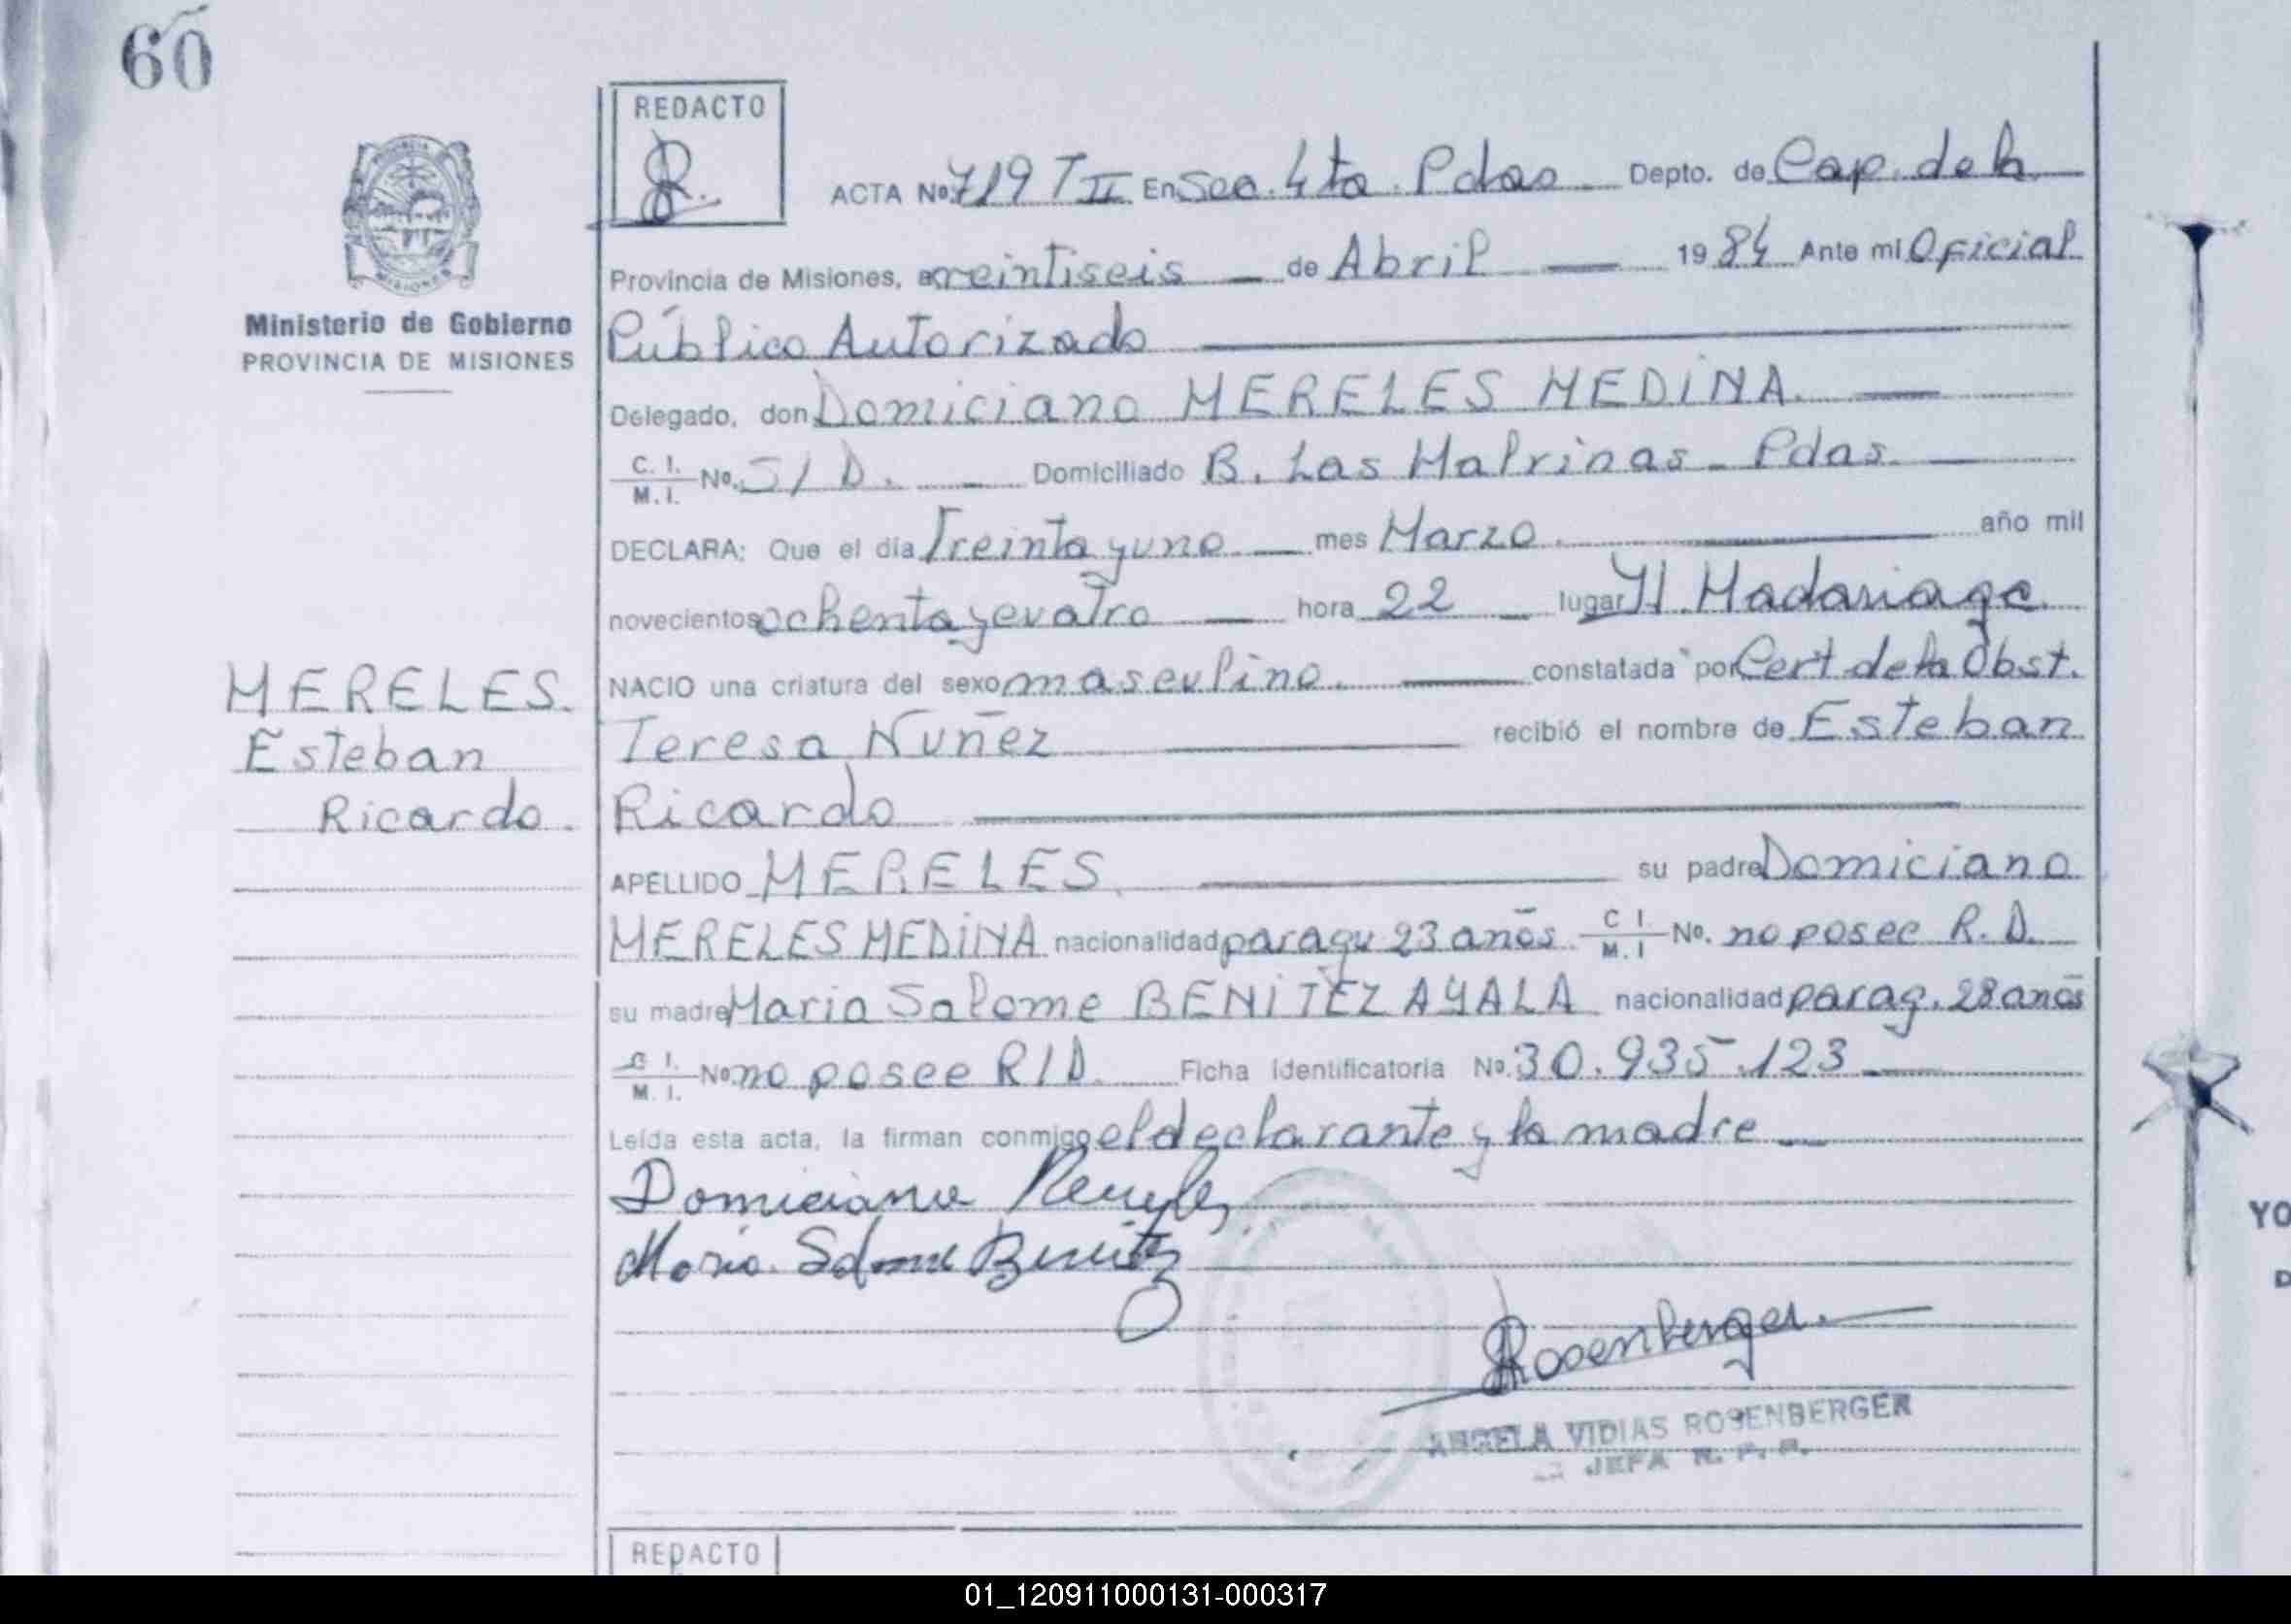 60
REDACTO
ACTA No. 719 T II En Sec. 4ta. Pdas Depto. de Cap. de la
Provincia de Misiones, a veintiseis de Abril 1984 Ante mi Oficial
Público Autorizado
Ministerio de Gobierno
PROVINCIA DE MISIONES
Delegado, don Domiciano MERELES MEDINA.
C. I. M. I. No. S/D. Domiciliado B. Las Malvinas - Pdas.
DECLARA: Que el día Treinta y uno mes Marzo. año mil
novecientos ochenta y cuatro hora 22 lugar H. Madariaga.
NACIO una criatura del sexo masculino. constatada por Cert de la Obst.
Teresa Nuñez recibió el nombre de Esteban
Ricardo
MERELES.
Esteban
Ricardo.
APELLIDO MERELES. su padre Domiciano
MERELES MEDINA nacionalidad paragu 23 años. C I M. I No. no posee R. D.
su madre Maria Salome BENITEZ AYALA nacionalidad parag. 28 anos
C I. M. I. No. no posee R/D. Ficha identificatoria No. 30.935.123
Leída esta acta, la firman conmigo el declarante y la madre
Domiciano Mereles
Maria Salome Benitez
Rosenberger.
ANGELA VIDIAS ROSENBERGER
JEFA R. P. P.
REDACTO
YO
D
01_120911000131-000317